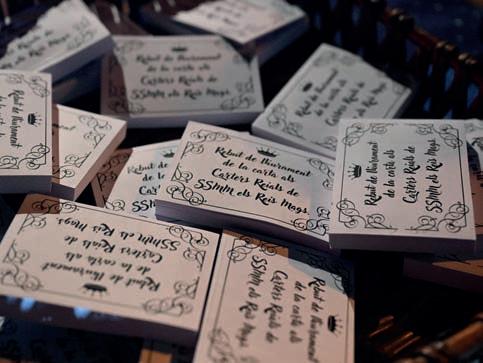 Rebut de lliurament
de la carta als
Carters Reials de
SSMM els Reis Mags.
Rebut de lliurament
de la carta als
Carters Reials de
SSMM els Reis Mags.
Rebut de lliurament
de la carta als
Carters Reials de
SSMM els Reis Mags.
Rebut de lliurament
de la carta als
Carters Reials de
SSMM els Reis Mags.
Rebut de lliurament
de la carta als
Carters Reials de
SSMM els Reis Mags.
Rebut de lliurament
de la carta als
Carters Reials de
SSMM els Reis Mags.